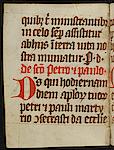 quibꝰ tͥ ministrantibꝰ
in celo semꝑ assistitur
ab hijs in terra uita no
stra muniatur P · d ·
de scō Petro ⁊ paulo ·
Deus qui hodiernam
diem aplo⁊ tuoꝝ
petri ⁊ pauli marty
rio ꝯsecrasti da ecclie